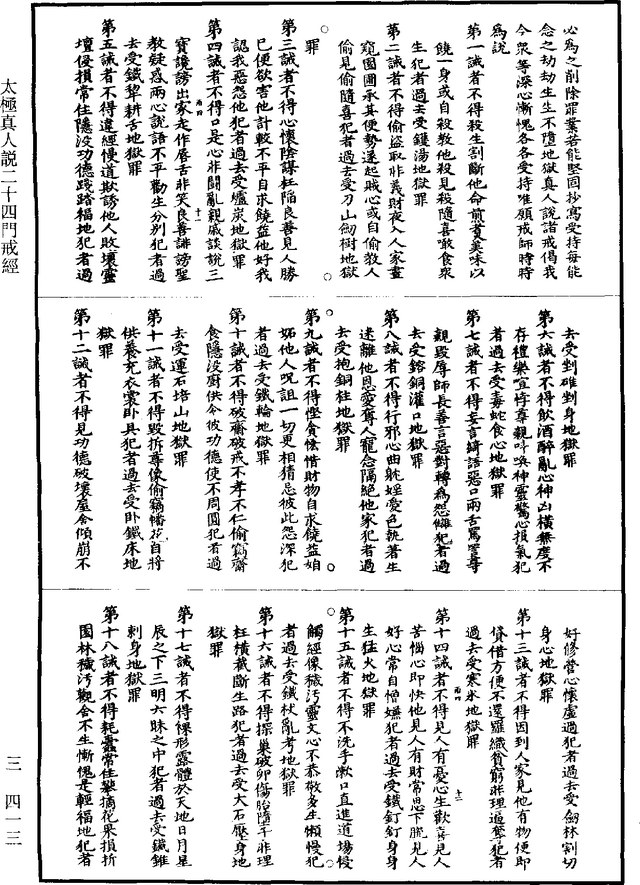 必為之削除罪業若能堅固抄寫受持每能
念之劫劫生生不墮地獄真人說諸戒偈我
今眾等深心慚愧各各受持唯願戒師時時
為說
第一誡者不得殺生割斷他命煎煑美味以
饒一身或自殺教他殺見殺隨喜噉食眾
生犯者過去受鑊湯地獄罪
第二誡者不得偷盜取非義財夜入人家晝
窺園圃承其便勢遂起賊心或自偷教人
偷見偷隨喜犯者過去受刀山劒樹地獄
罪
第三誡者不得心懷陰謀枉陥良善見人勝
已便欲害他計較不平自求饒益他好我
認我惡怨他犯者過去受爐炭地獄罪
第四誡者不得口是心非鬪亂親戚談說三
寶譏謗出家走作唇舌非笑良善誹謗聖
教疑惑兩心說語不平勸生分別犯者過
去受鐵犂耕舌地獄罪
第五誡者不得違經慢道欺誘他人敗壞靈
壇侵損常住隱没功德踐踏福地犯者過
去受剉碓剉身地獄罪
第六誡者不得飲酒醉亂心神凶橫無度不
存禮樂喧悖尊親叫喚神靈驚心損氣犯
者過去受毒蛇食心地獄罪
第七誡者不得妄言綺語惡口兩舌罵詈尊
親毀辱師長善言惡對轉為怨讎犯者過
去受鎔銅灌口地獄罪
第八誡者不得行邪心曲躭婬愛色執著生
迷離他恩愛奪人寵念隔絕他家犯者過
去受抱銅柱地獄罪
第九誡者不得慳貪恡惜財物自求饒益妬
妬他人呪詛一切更相猜忌彼此怨深犯
者過去受鐵輪地獄罪
第十誡者不得破齋破戒不孝不仁偷竊齋
食隱没廚供令彼功德使不周圓犯者過
去受運石培山地獄罪
第十一誡者不得毀拆尊像偷竊幡花自將
供養充衣裳卧具犯者過去受卧鐵床地
獄罪
第十二誡者不得見功德破壞屋舍傾崩不
好修營心懷虛過犯者過去受劒林割切
身心地獄罪
第十三誡者不得因到人家見他有物便即
貸借方便不還羅織貧窮非理逼奪犯者
過去受寒氷地獄罪
第十四誡者不得見人有憂心生歡喜見人
苦惱心即快他見人有財常思下脫見人
好心常自憎嫌犯者過去受鐵釘釘身身
生猛火地獄罪
第十五誡者不得不洗手漱口直進道場慢
觸經像穢汚靈文心不恭敬多生懶慢犯
者過去受鐵杖亂考地獄罪
第十六誡者不得探巢破卵傷胎隨子非理
枉橫截斷生路犯者過去受大石壓身地
獄罪
第十七誡者不得裸形露體於天地日月星
辰之下三明六昧之中犯者過去受鐵錐
刺身地獄罪
第十八誡者不得耗蠹常住攀摘花果損折
園林穢汚觀舍不生慚愧是輕福地犯者
太極真人說二十四門戒經
三 四一三